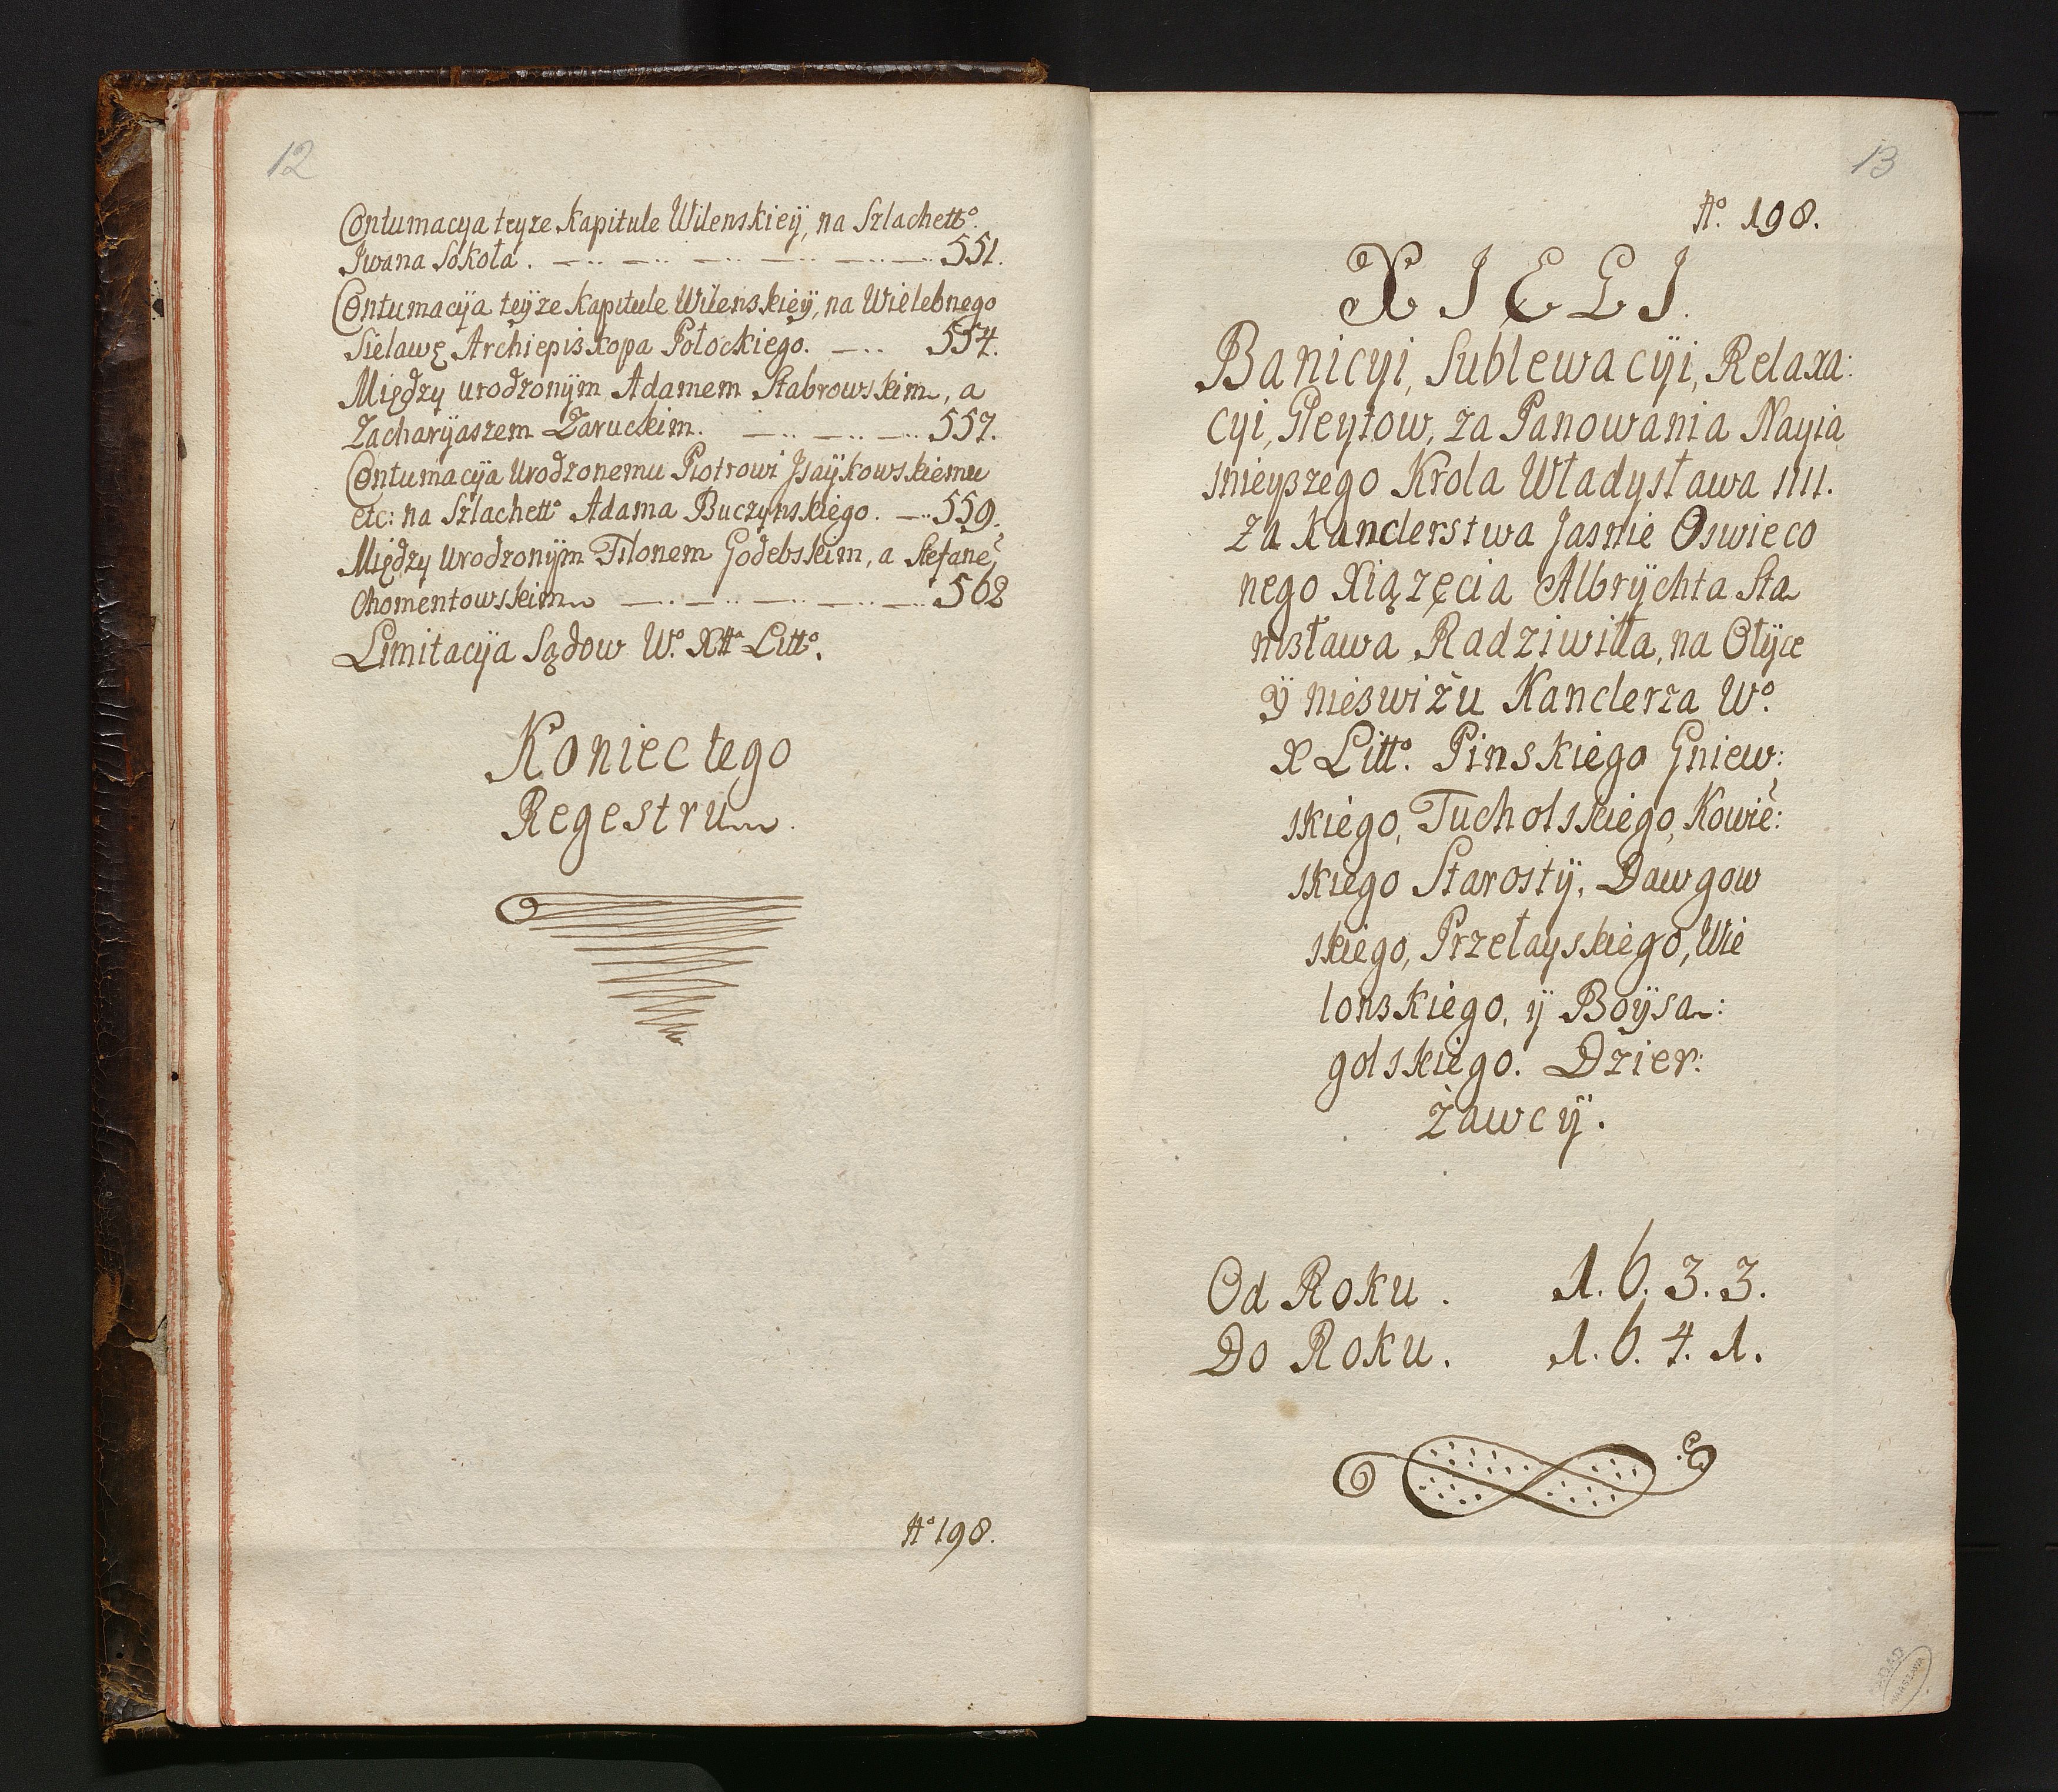 12
Contumacya teyze Kapitule Wilenskieÿ, na Szlachett°
Jwana Sokoła. 551.
Contumacÿa teÿze Kapitule Wilenskieÿ, na Wielebnego
Sielawę Archiepiskopa Połockiego. 554.
Między urodzonÿm Adamem Stabrowskim, a
Zacharÿaszem Zaruckim. 557.
Contumacÿa Urodzonemu Piotrowi Jsaÿkowskiemu
etc: na Szlachett° Adama Buczynskiego. 559.
Między Urodzonÿm Filonem Godebskim, a Stefanē
Chomentowskim 562
Limitacÿa Sądow W.° Xtta Litt°.
Koniec tego
Regestrum.
N° 198.
13
N° 198.
XIĘGI.
Banicyi, Sublewacÿi, Relaxa:
cyi, Gleytow, za Panowania Nayia
snieyszego Krola Władysława IIII.
za Kanclerstwa Jasnie Oswieco
nego Xiązęcia Albrÿchta Sta
nisława Radziwiłła, na Ołÿce
ÿ nieswiżu Kanclerza W°.
X Litt°. Pinskiego Gniew:
skiego, Tucholskiego, Kowiē:
skiego Starostÿ, Dawgow
skiego, Przełayskiego, Wie
lonskiego, ÿ Boÿsa:
golskiego. Dzier:
żawcÿ.
Od Roku. 1.6.3.3.
Do Roku. 1.6.4.1.
AGAD
WARSZAWA